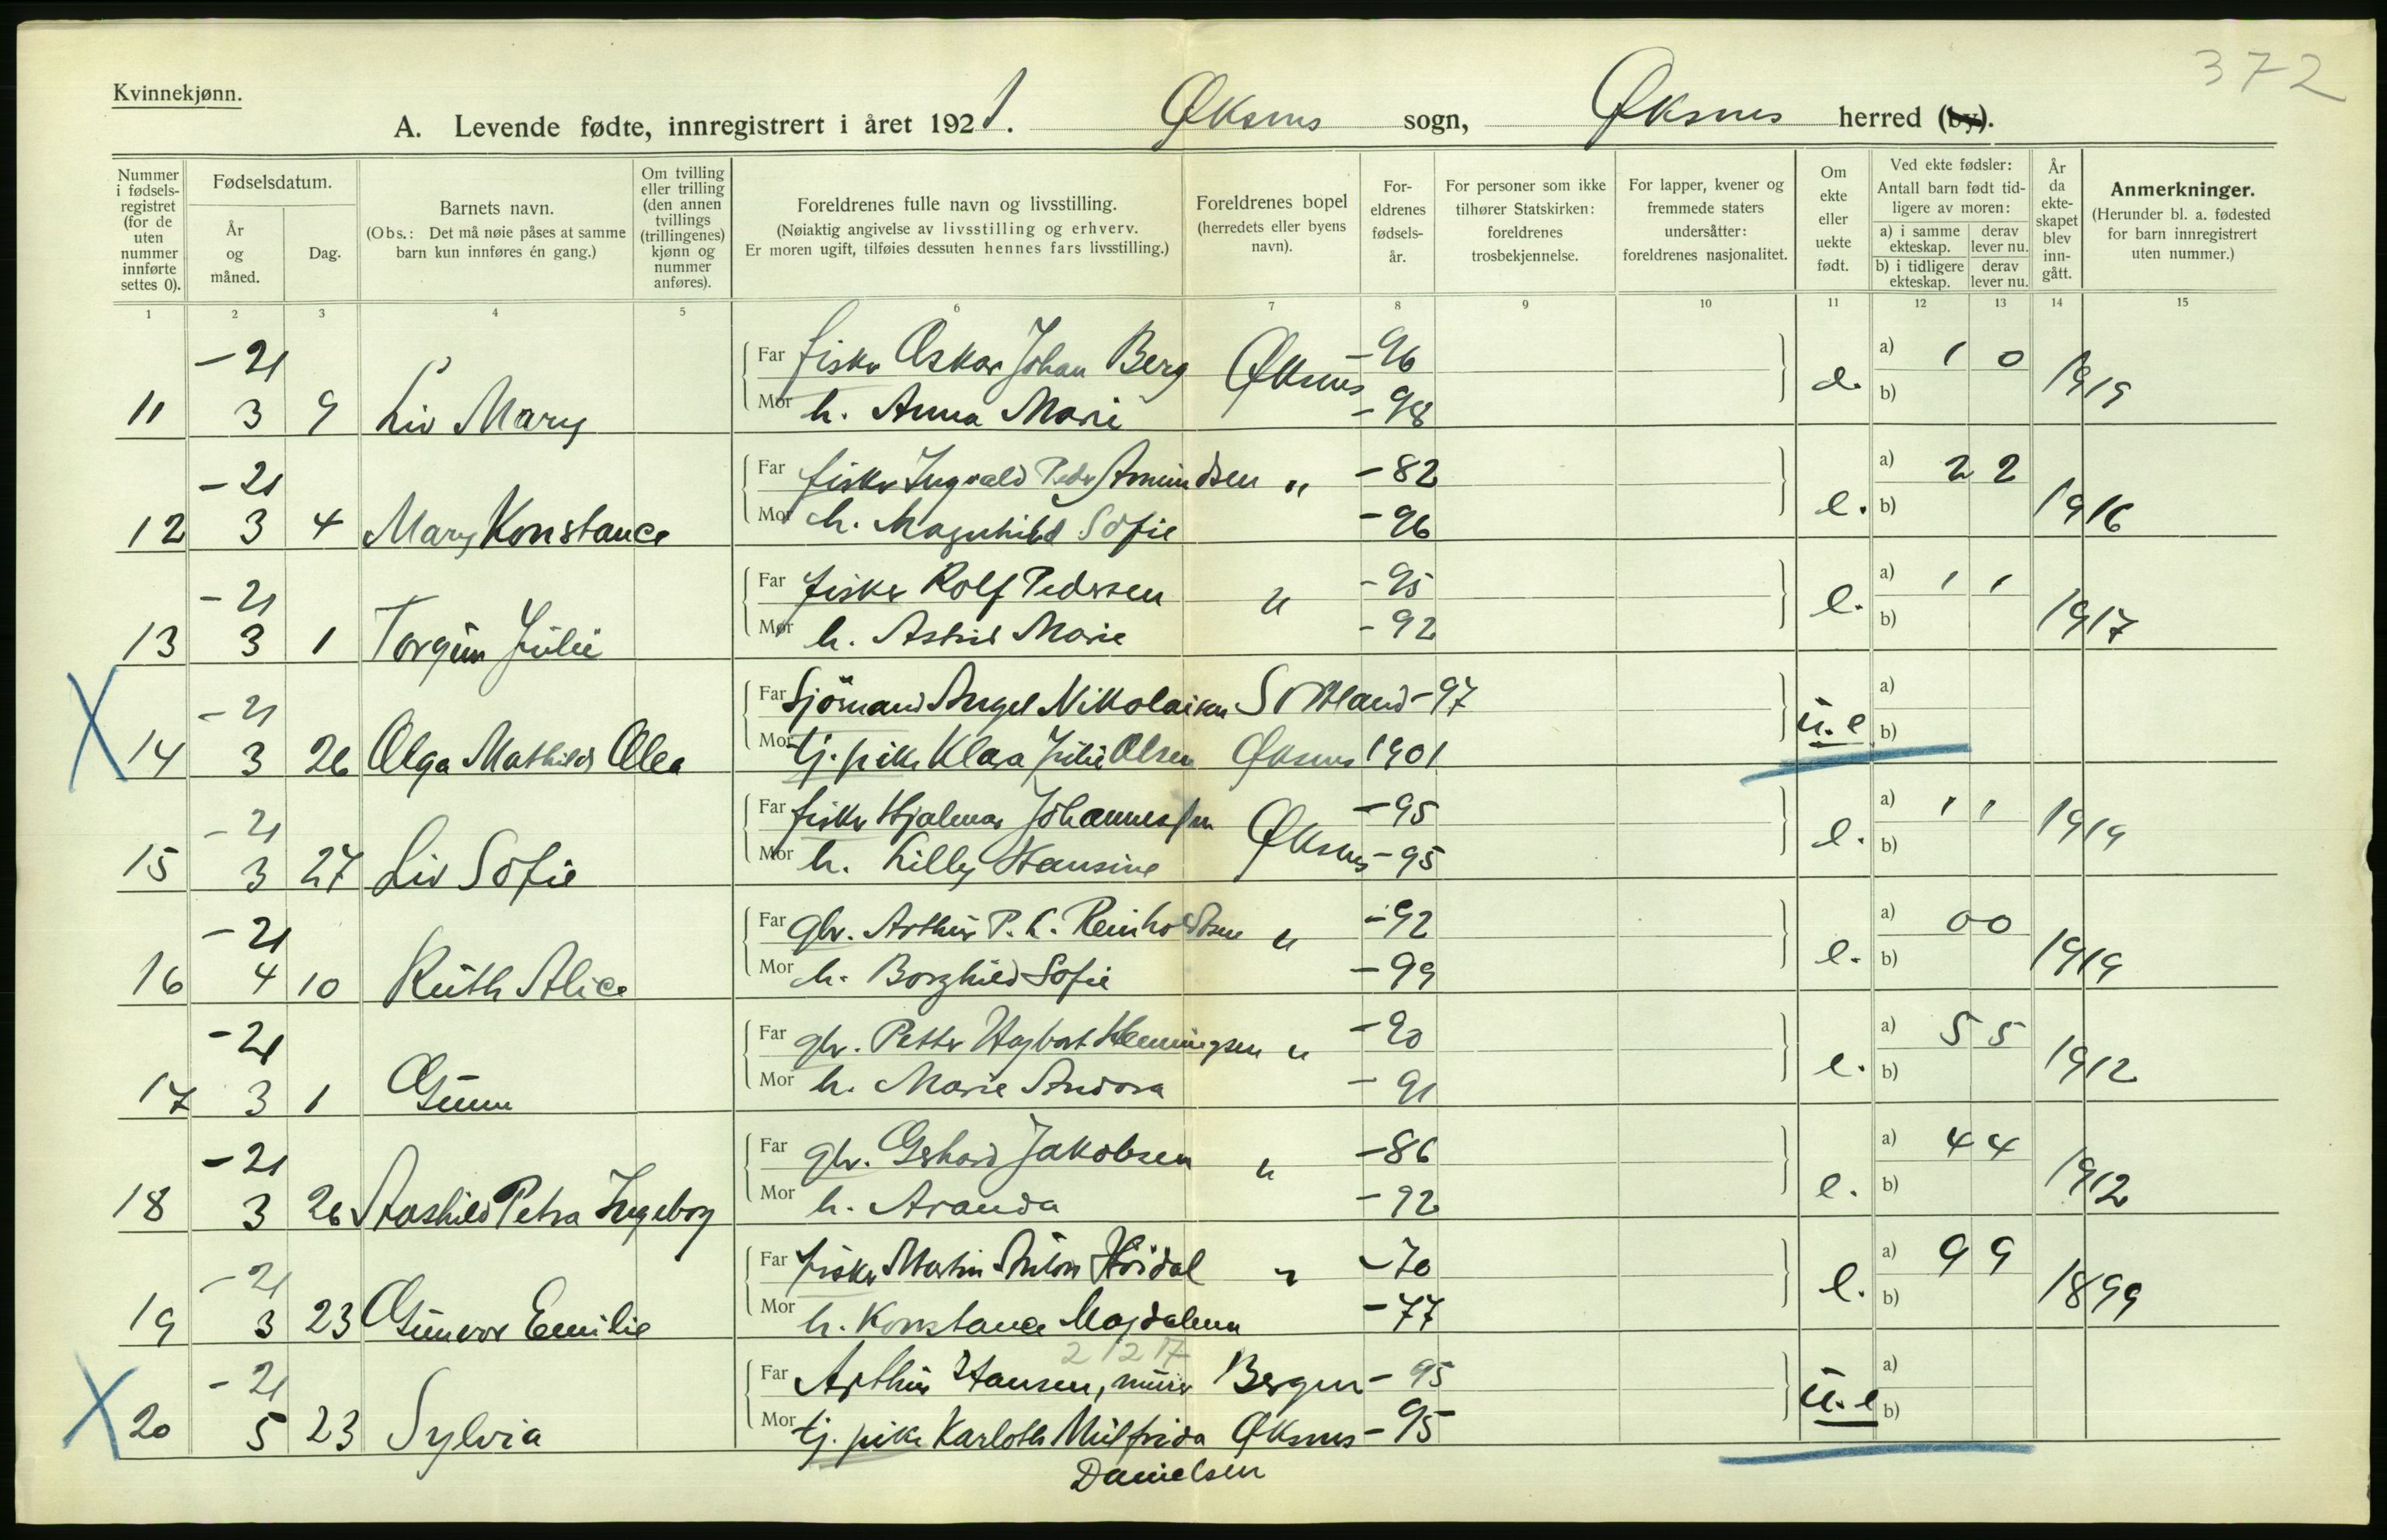 372
Kvinnekjønn.
A. Levende fødte, innregistrert i året 1921. Øksnes sogn, Øksnes herred (by).
Nummer i fødsels-registret (for de uten nummer innførte settes 0).
Fødselsdatum.
År og måned.
Dag.
Barnets navn.
(Obs.: Det må nøie påses at samme barn kun innføres én gang.)
Om tvilling eller trilling (den annen tvillings (trillingenes) kjønn og nummer anføres).
Foreldrenes fulle navn og livsstilling.
(Nøiaktig angivelse av livsstilling og erhverv.
Er moren ugift, tilføies dessuten hennes fars livsstilling.)
Foreldrenes bopel (herredets eller byens navn).
For-eldrenes fødsels-år.
For personer som ikke tilhører Statskirken: foreldrenes trosbekjennelse.
For lapper, kvener og fremmede staters undersåtter: foreldrenes nasjonalitet.
Om ekte eller uekte født.
Ved ekte fødsler:
Antall barn født tid-ligere av moren:
a) i samme ekteskap. derav lever nu.
b) i tidligere ekteskap. derav lever nu.
År da ekte-skapet blev inn-gått.
Anmerkninger.
(Herunder bl. a. fødested for barn innregistrert uten nummer.)
1 2 3 4 5 6 7 8 9 10 11 12 13 14 15
-21 Far fisker Oskar Johan Berg Øksnes -96 a) 1 0
11 3 9 Liv Mary Mor h. Anna Marie -98 e. b) 1919
-21 Far fisker Ingvald Peder Amundsen " -82 a) 2 2
12 3 4 Mary Konstance Mor h. Magnhild Sofie -96 e. b) 1916
-21 Far fisker Rolf Pedersen " -95 a) 1 1
13 3 1 Torgun Julie Mor h. Astrid Marie -92 e. b) 1917
X -21 Far Sjömand Angel Nikolaisen Sortland -97 a)
14 3 26 Olga Mathilde Olea Mor tj. pike Klara Julie Olsen Øksnes 1901 u.e b)
-21 Far fisker Hjalmar Johannessen Øksnes -95 a) 1 1
15 3 27 Liv Sofie Mor h. Lilly Hansine -95 e. b) 1919
-21 Far gbr. Arthur P. K. Reinholdtsen " -92 a) 0 0
16 4 10 Ruth Alice Mor h. Borghild Sofie -99 e. b) 1919
-21 Far gbr. Petter Hagbart Henningsen " -90 a) 5 5
17 3 1 Gunn Mor h. Marie Andora -91 e. b) 1912
-21 Far gbr. Gerhard Jakobsen " -86 a) 4 4
18 3 26 Aashild Petra Ingeborg Mor h. Aranda -92 e. b) 1912
-21 Far fisker Martin Anton Höidal " -70 a) 9 9
19 3 23 Gunvor Emilie Mor h. Konstance Magdalena -77 e. b) 1899
21217
X -21 Far Arthur Hansen, murer Bergen -95 a)
20 5 23 Sylvia Mor tj. pike Karloth Milfrida Øksnes -95 u.e b)
Danielsen